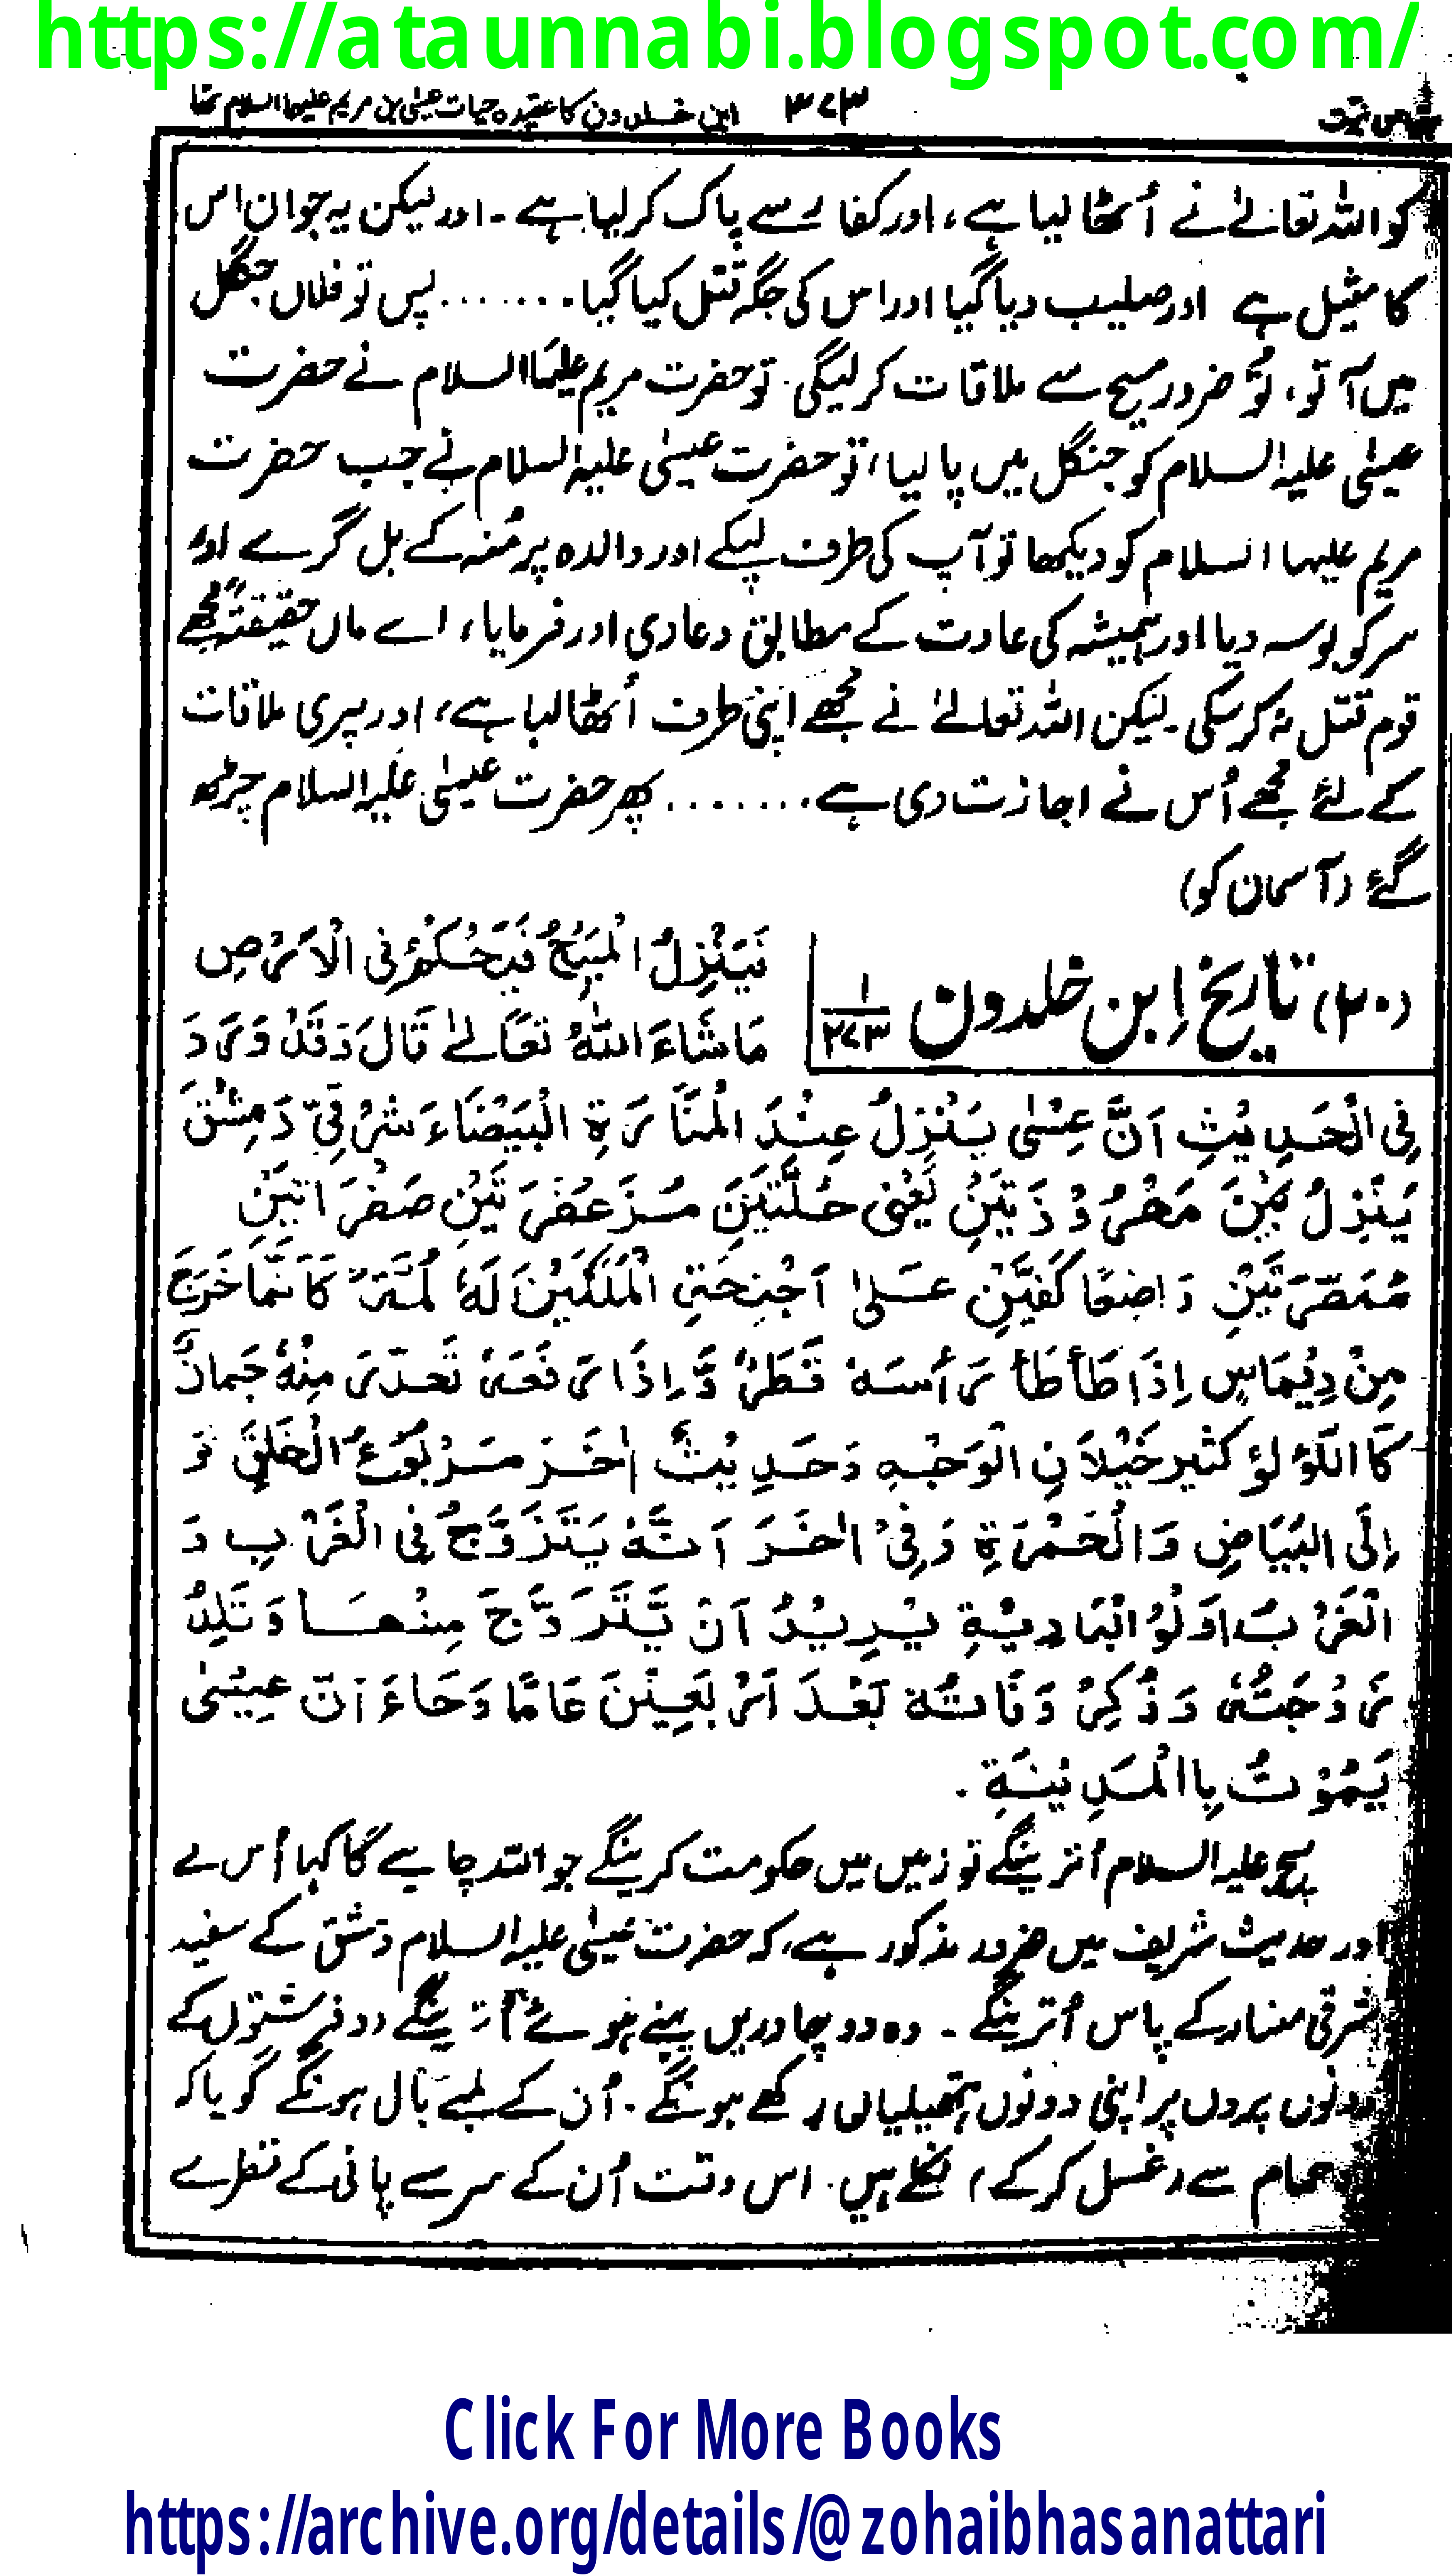 https://ataunnabi.blogspot.com/
ابن خلدون کا عقیدہ حیات عیسٰی بن مریم علیہما السلام تھا
۳۷۳
کو اللہ تعالےٰ نے اُٹھا لیا ہے، اور کفار سے پاک کر لیا ہے۔ اور لیکن یہ جوان اس
کا مثیل ہے اور صلیب دیا گیا اور اس کی جگہ قتل کیا گیا ....... پس تو فلاں جنگل
میں آ تو، تُو ضرور مسیح سے ملاقات کر لیگی۔ تو حضرت مریم علیہما السلام نے حضرت
عیسٰی علیہ السلام کو جنگل میں پا لیا، تو حضرت عیسٰی علیہ السلام نے جب حضرت
مریم علیہا السلام کو دیکھا تو آپ کی طرف لپکے اور والدہ پر مُنہ کے بل گرے اور
سر کو بوسہ دیا اور ہمیشہ کی عادت کے مطابق دعا دی اور فرمایا، اے ماں حقیقتہً مجھے
قوم قتل نہ کر سکی۔ لیکن اللہ تعالےٰ نے مُجھے اپنی طرف اُٹھا لیا ہے، اور میری ملاقات
کے لئے مُجھے اُس نے اجازت دی ہے ....... پھر حضرت عیسٰی علیہ السلام چڑھ
گئے (آسمان کو)
(۲۰) تاریخ اِبن خلدون ۱/۲۷۳
فَيَنْزِلُ الْمَسِيْحُ فَيَحْكُمُ فِى الْاَرْضِ
مَاشَاءَ اللّٰهُ تَعَالٰى قَالَ وَقَدْ وَرَدَ
فِى الْحَدِيْثِ اَنَّ عِيْسٰى يَنْزِلُ عِنْدَ الْمَنَارَةِ الْبَيْضَاءَ شَرْقِىِّ دَمِشْقَ
يَنْزِلُ بَيْنَ مَهْرُوْذَتَيْنِ يَعْنِى حُلَّتَيْنِ مُزَعْفَرَتَيْنِ صَفْرَاتَيْنِ
مُمَصَّرَتَيْنِ وَاضِعًا كَفَّيْنِ عَلٰى اَجْنِحَةِ الْمَلَكَيْنِ لَهٗ لُمَّةٌ كَاَنَّمَا خَرَجَ
مِنْ دِيْمَاسٍ اِذَا طَأطَأ رَأسَهٗ قَطَرَ وَاِذَا رَفَعَهٗ تَحَدَّرَ مِنْهُ جُمَانٌ
كَا اللُؤْلُؤِ كَثِيْر خَيْلَانِ الْوَجْهِ وَحَدِيْثٌ اٰخَرَ مَرْبُوْعُ الْخَلْقِ وَ
اِلَى الْبَيَاضِ وَالْحُمْرَةِ وَفِىْ اٰخَرَ اَنَّهٗ يَتَزَوَّجُ فِى الْغَرْبِ وَ
الْغَرْبُ اوَلُوْ الْبَادِيَةِ يُرِيْدُ اَنْ يَّتَزَوَّجَ مِنْهَا وَتَلِدُ
زَوْجَتُهٗ وَذُكِرَ وَفَاتُهٗ بَعْدَ اَرْبَعِيْنَ عَامًا وَجَاءَ اَنَّ عِيْسٰى
يَمُوْتُ بِاالْمَدِيْنَةِ۔
مسیح علیہ السلام اُتر ینگے تو زمیں میں حکومت کرینگے جو اللہ چاہے گا کہا اُس نے
اور حدیث شریف میں ضرور مذکور ہے، کہ حضرت عیسٰی علیہ السلام دمشق کے سفید
شرقی منار کے پاس اُترینگے۔ وہ دو چادریں پہنے ہوئے اُترینگے دو فرشتوں کے
دونوں پروں پر اپنی دونوں ہتھیلیاں رکھے ہونگے۔ اُن کے لمبے بال ہونگے گویا کہ
حمام سے (غسل کر کے) نکلے ہیں۔ اس وقت اُن کے سر سے پانی کے قطرے
Click For More Books
https://archive.org/details/@zohaibhasanattari